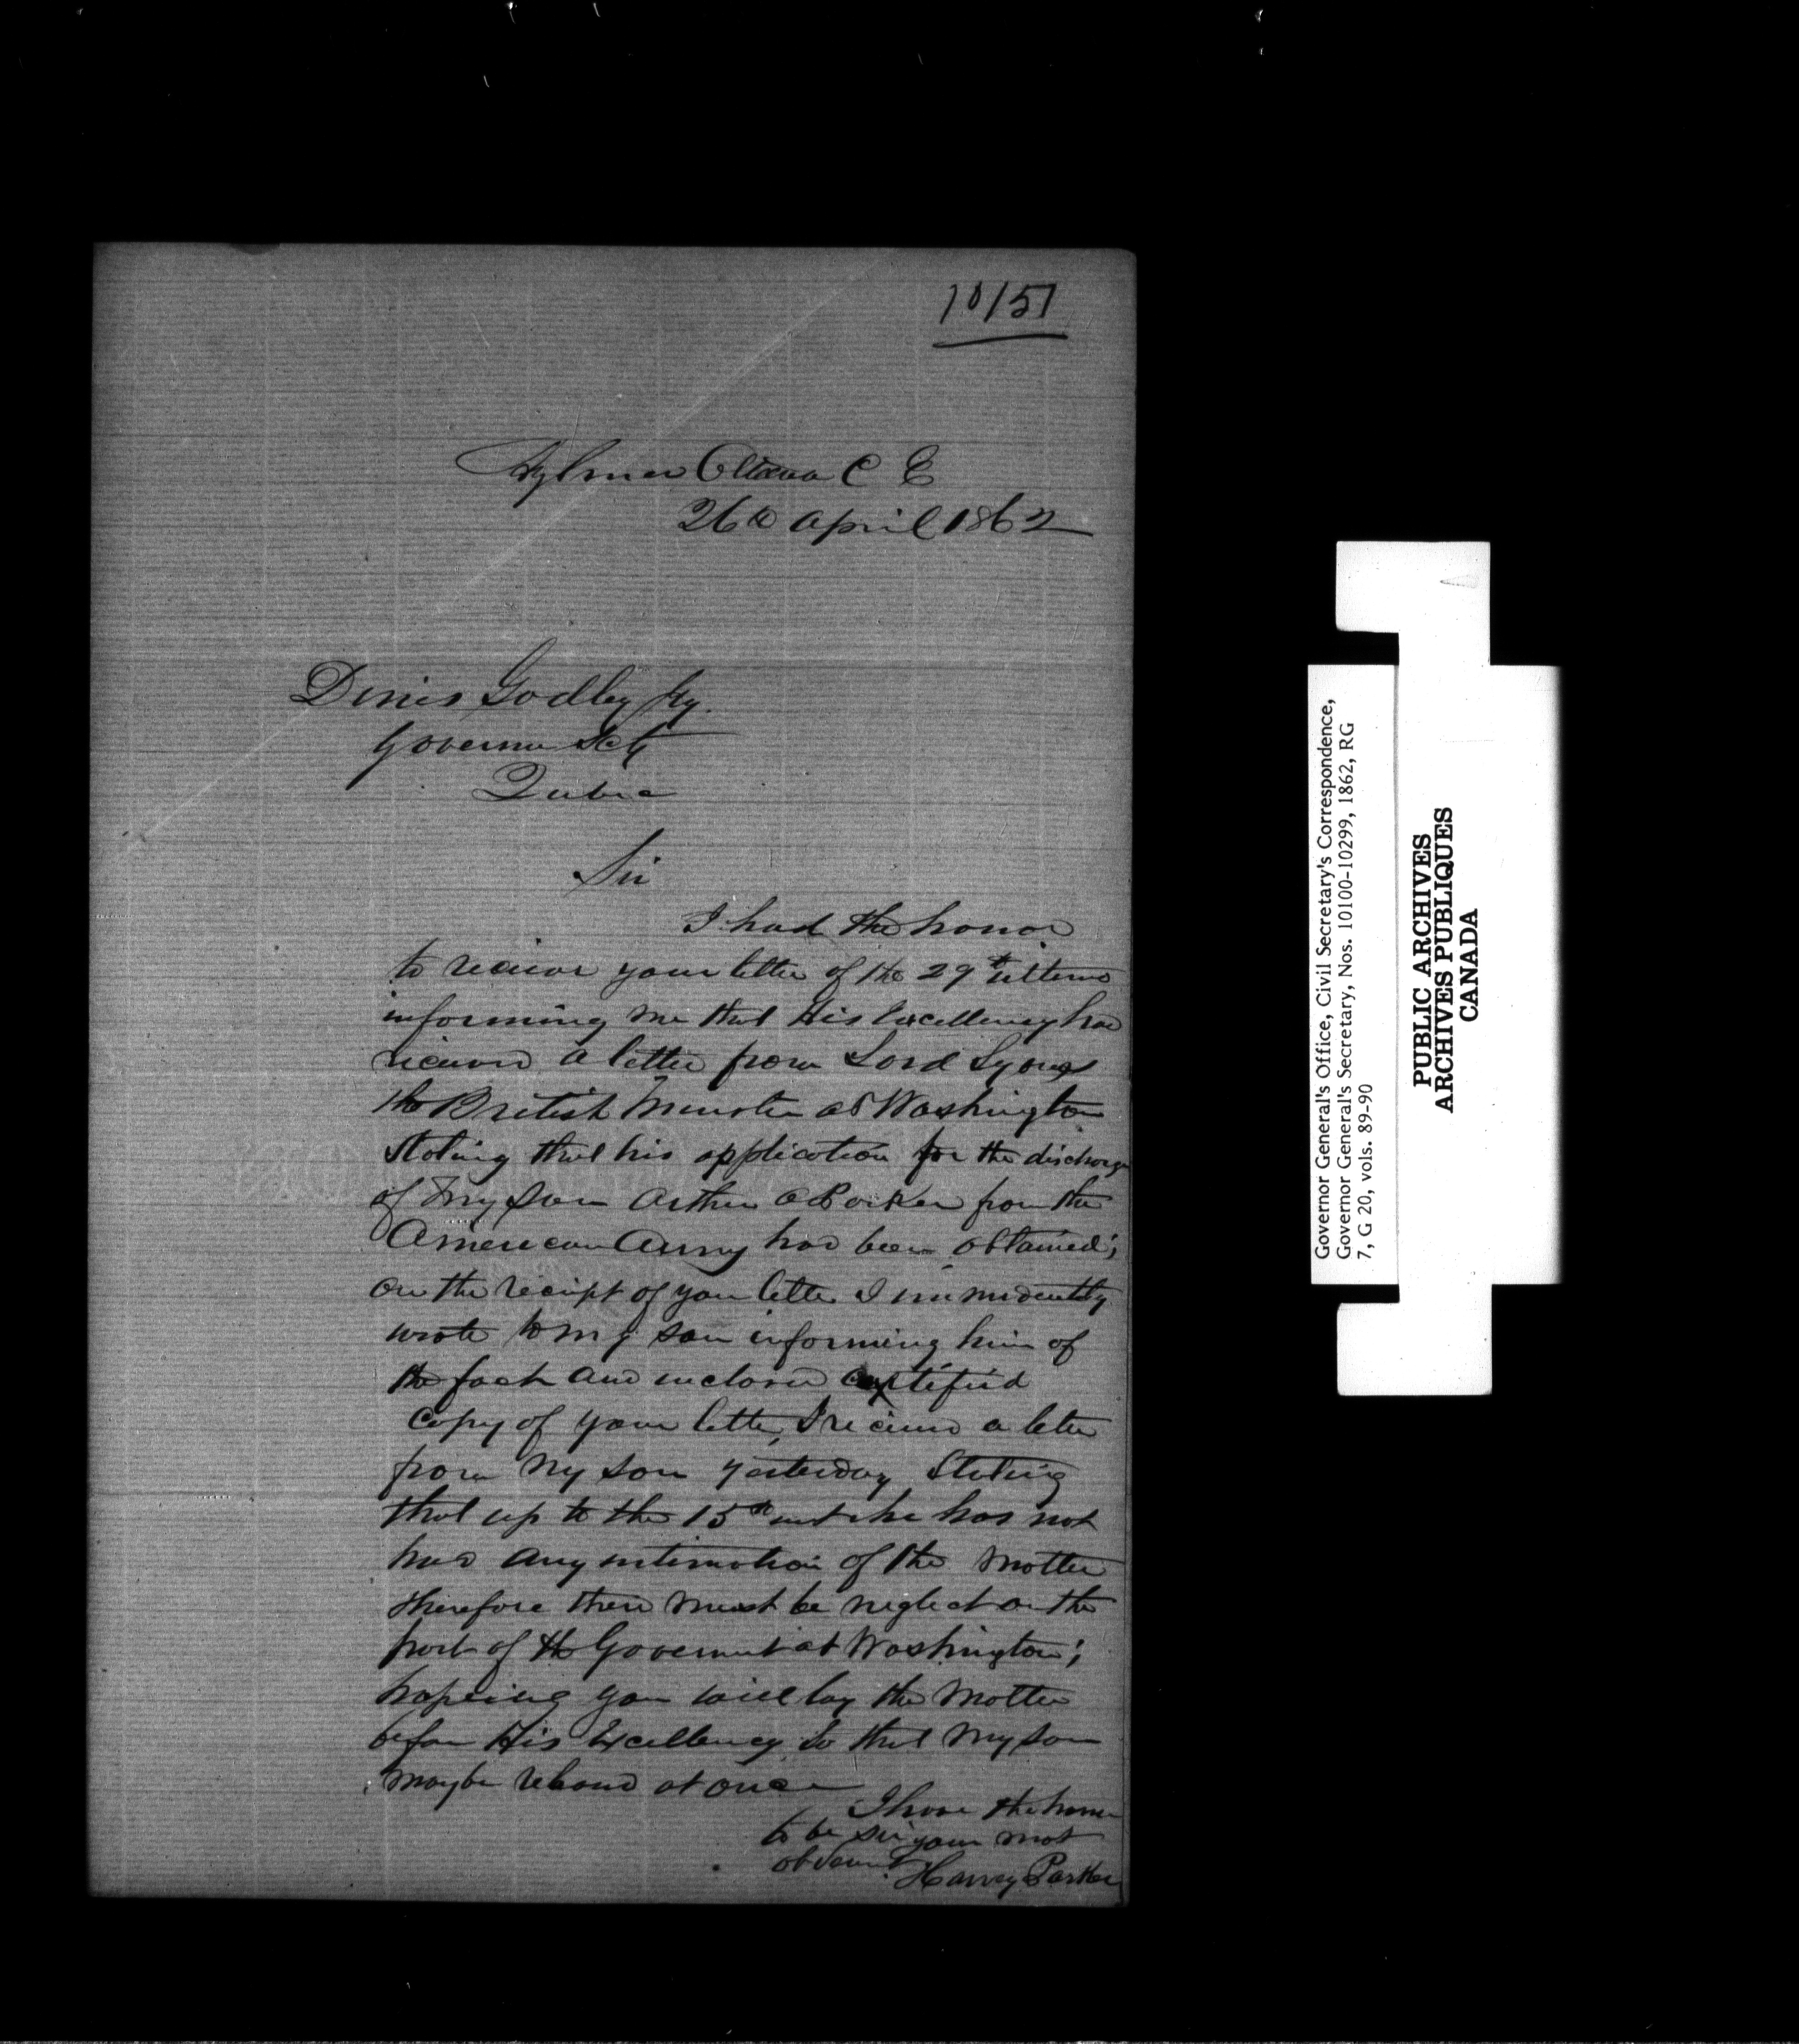 10151
Aylmer Ottawa C E
26th April 1862
Denis Godley Esq.
Governor Secty
Quebec
Sir
I had the honor
to receive your letter of the 29th ultimo
informing me that His Excellency had
received a letter from Lord Lyons
the British Minister at Washington
stating that his application for the discharge
of my son Arthur Parker from the
American Army had been obtained;
on the receipt of your letter I immediently
wrote to my son informing him of
the fact and inclosed certified
copy of your letter, I received a letter
from my son yesterday stating
that up to the 15th inst he has not
had any intimation of the matter
therefore there must be neglect on the
part of the Government at Washington;
hopeing you will lay the matter
before His Excellency so that my son
may be released at once
I have the honor
to be sir your most
obd servant
Harvey Parker
Governor General's Office, Civil Secretary's Correspondence,
Governor General's Secretary, Nos. 10100-10299, 1862, RG
7, G 20, vols. 89-90
PUBLIC ARCHIVES
ARCHIVES PUBLIQUES
CANADA